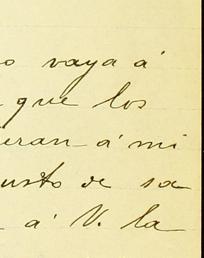 o vaya á
que los
eran á mi
usto de sa
á V. la